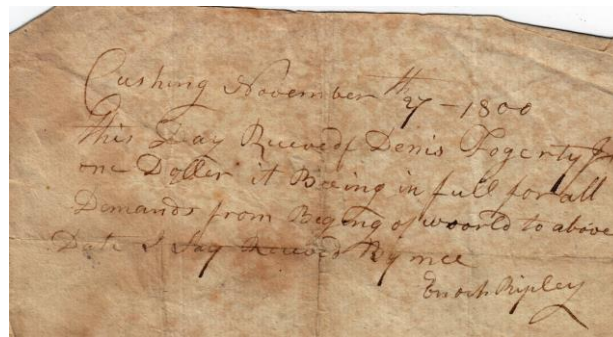 Cushing November th 27 - 1800
this Day Receved Denis Fogerty Jr
one Doller it Beeing in full for all
Demands from Beging of woorld to above
Date I Say Receved By mee
Enoch Ripley